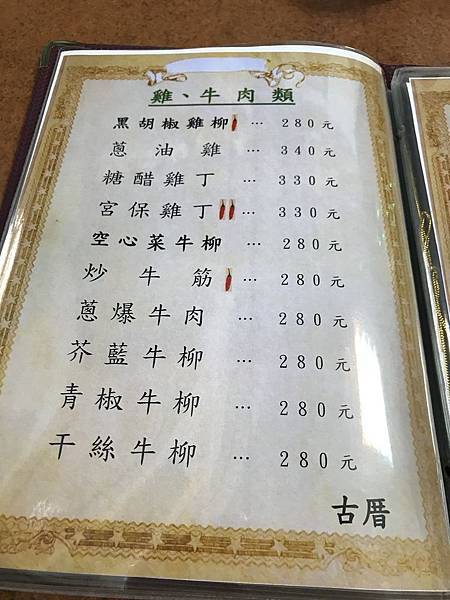 雞、牛肉類
黑胡椒雞柳 … 280元
蔥油雞 … 340元
糖醋雞丁 … 330元
宮保雞丁 … 330元
空心菜牛柳 … 280元
炒牛筋 … 280元
蔥爆牛肉 … 280元
芥藍牛柳 … 280元
青椒牛柳 … 280元
干絲牛柳 … 280元
古厝